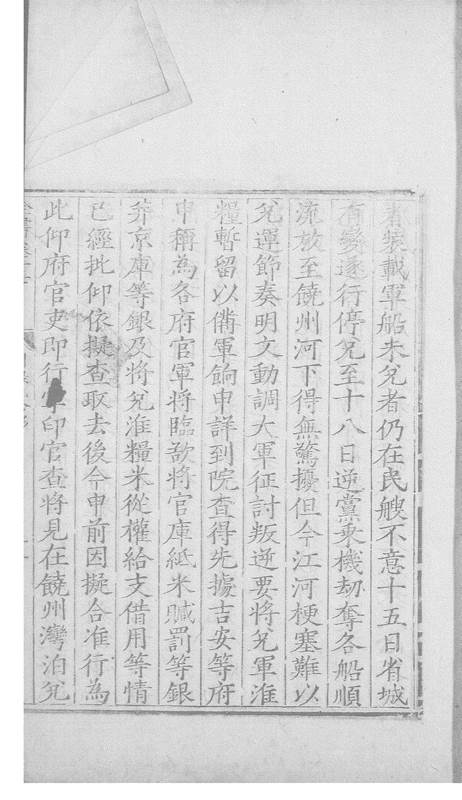 者裝載軍船未兌者仍在民艘不意十五日省城
有變遂行停兌至十八日逆黨乘機劫奪各船順
流放至饒州河下得無驚擾但今江河梗塞難以
兌運節奏明文動調大軍征討叛逆要將兌軍淮
糧暫留以備軍餉申詳到院查得先據吉安等府
申稱為各府官軍將臨敵將官庫紙米贓罰等銀
并京庫等銀及將兌淮糧米從權給支借用等情
已經批仰依擬查取去後今申前因擬合准行為
此仰府官吏即行掌印官查將見在饒州灣泊兌